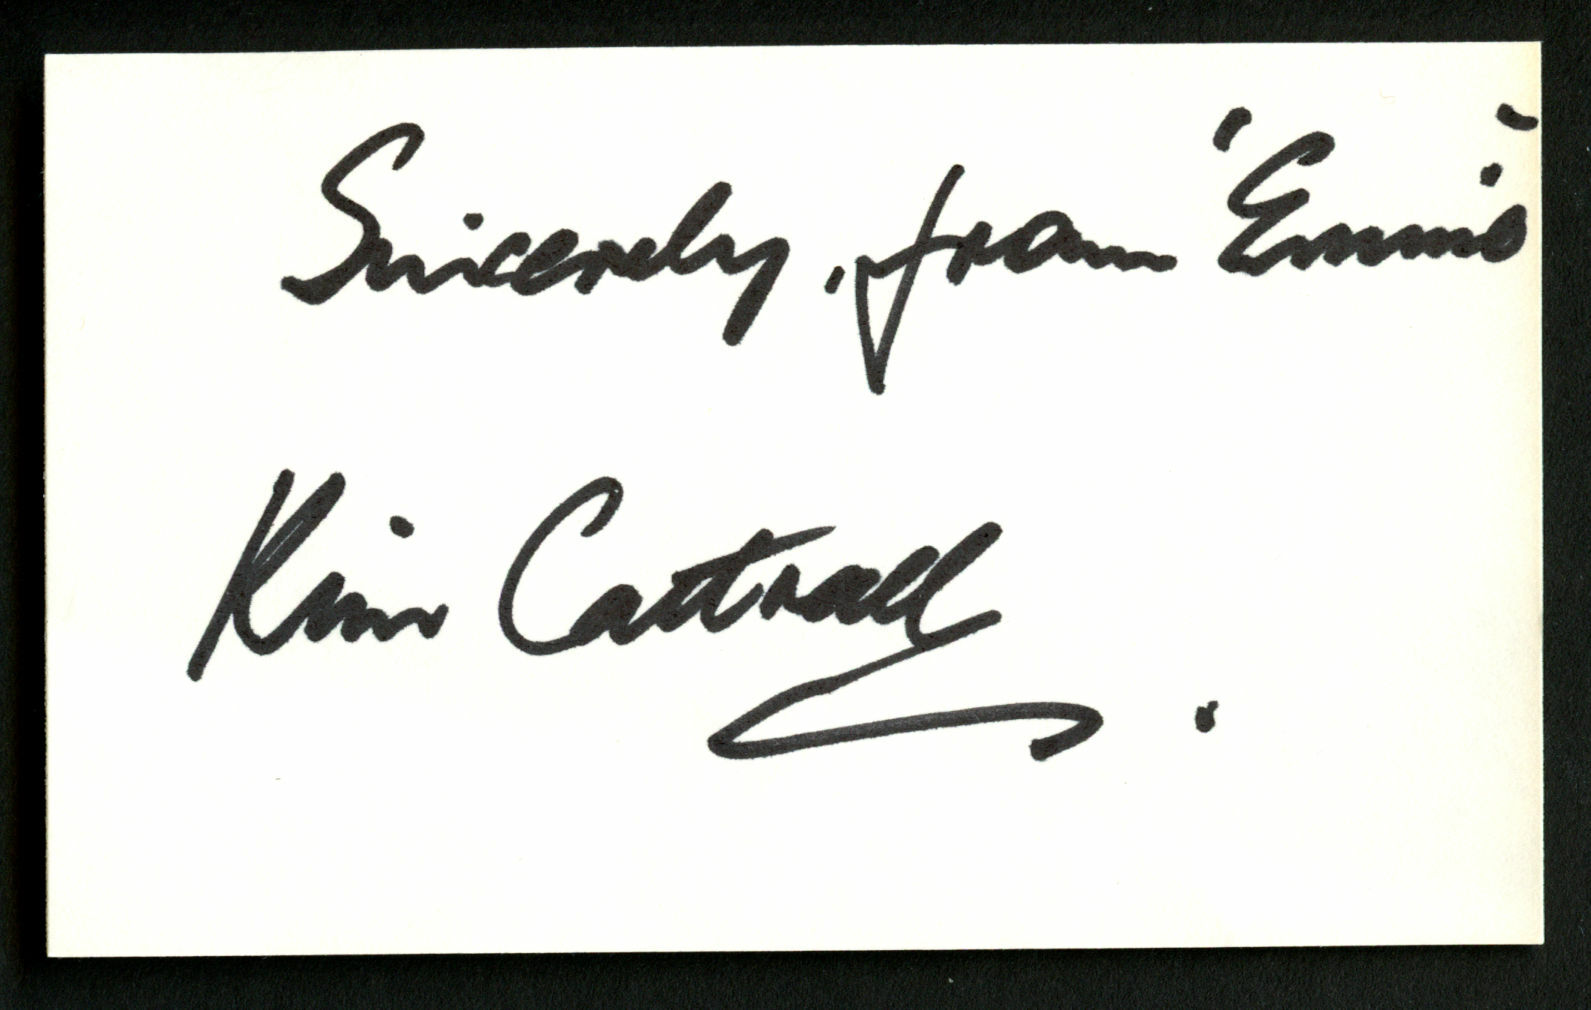 Sincerely, from "Emmie"
Kim Cattrall.